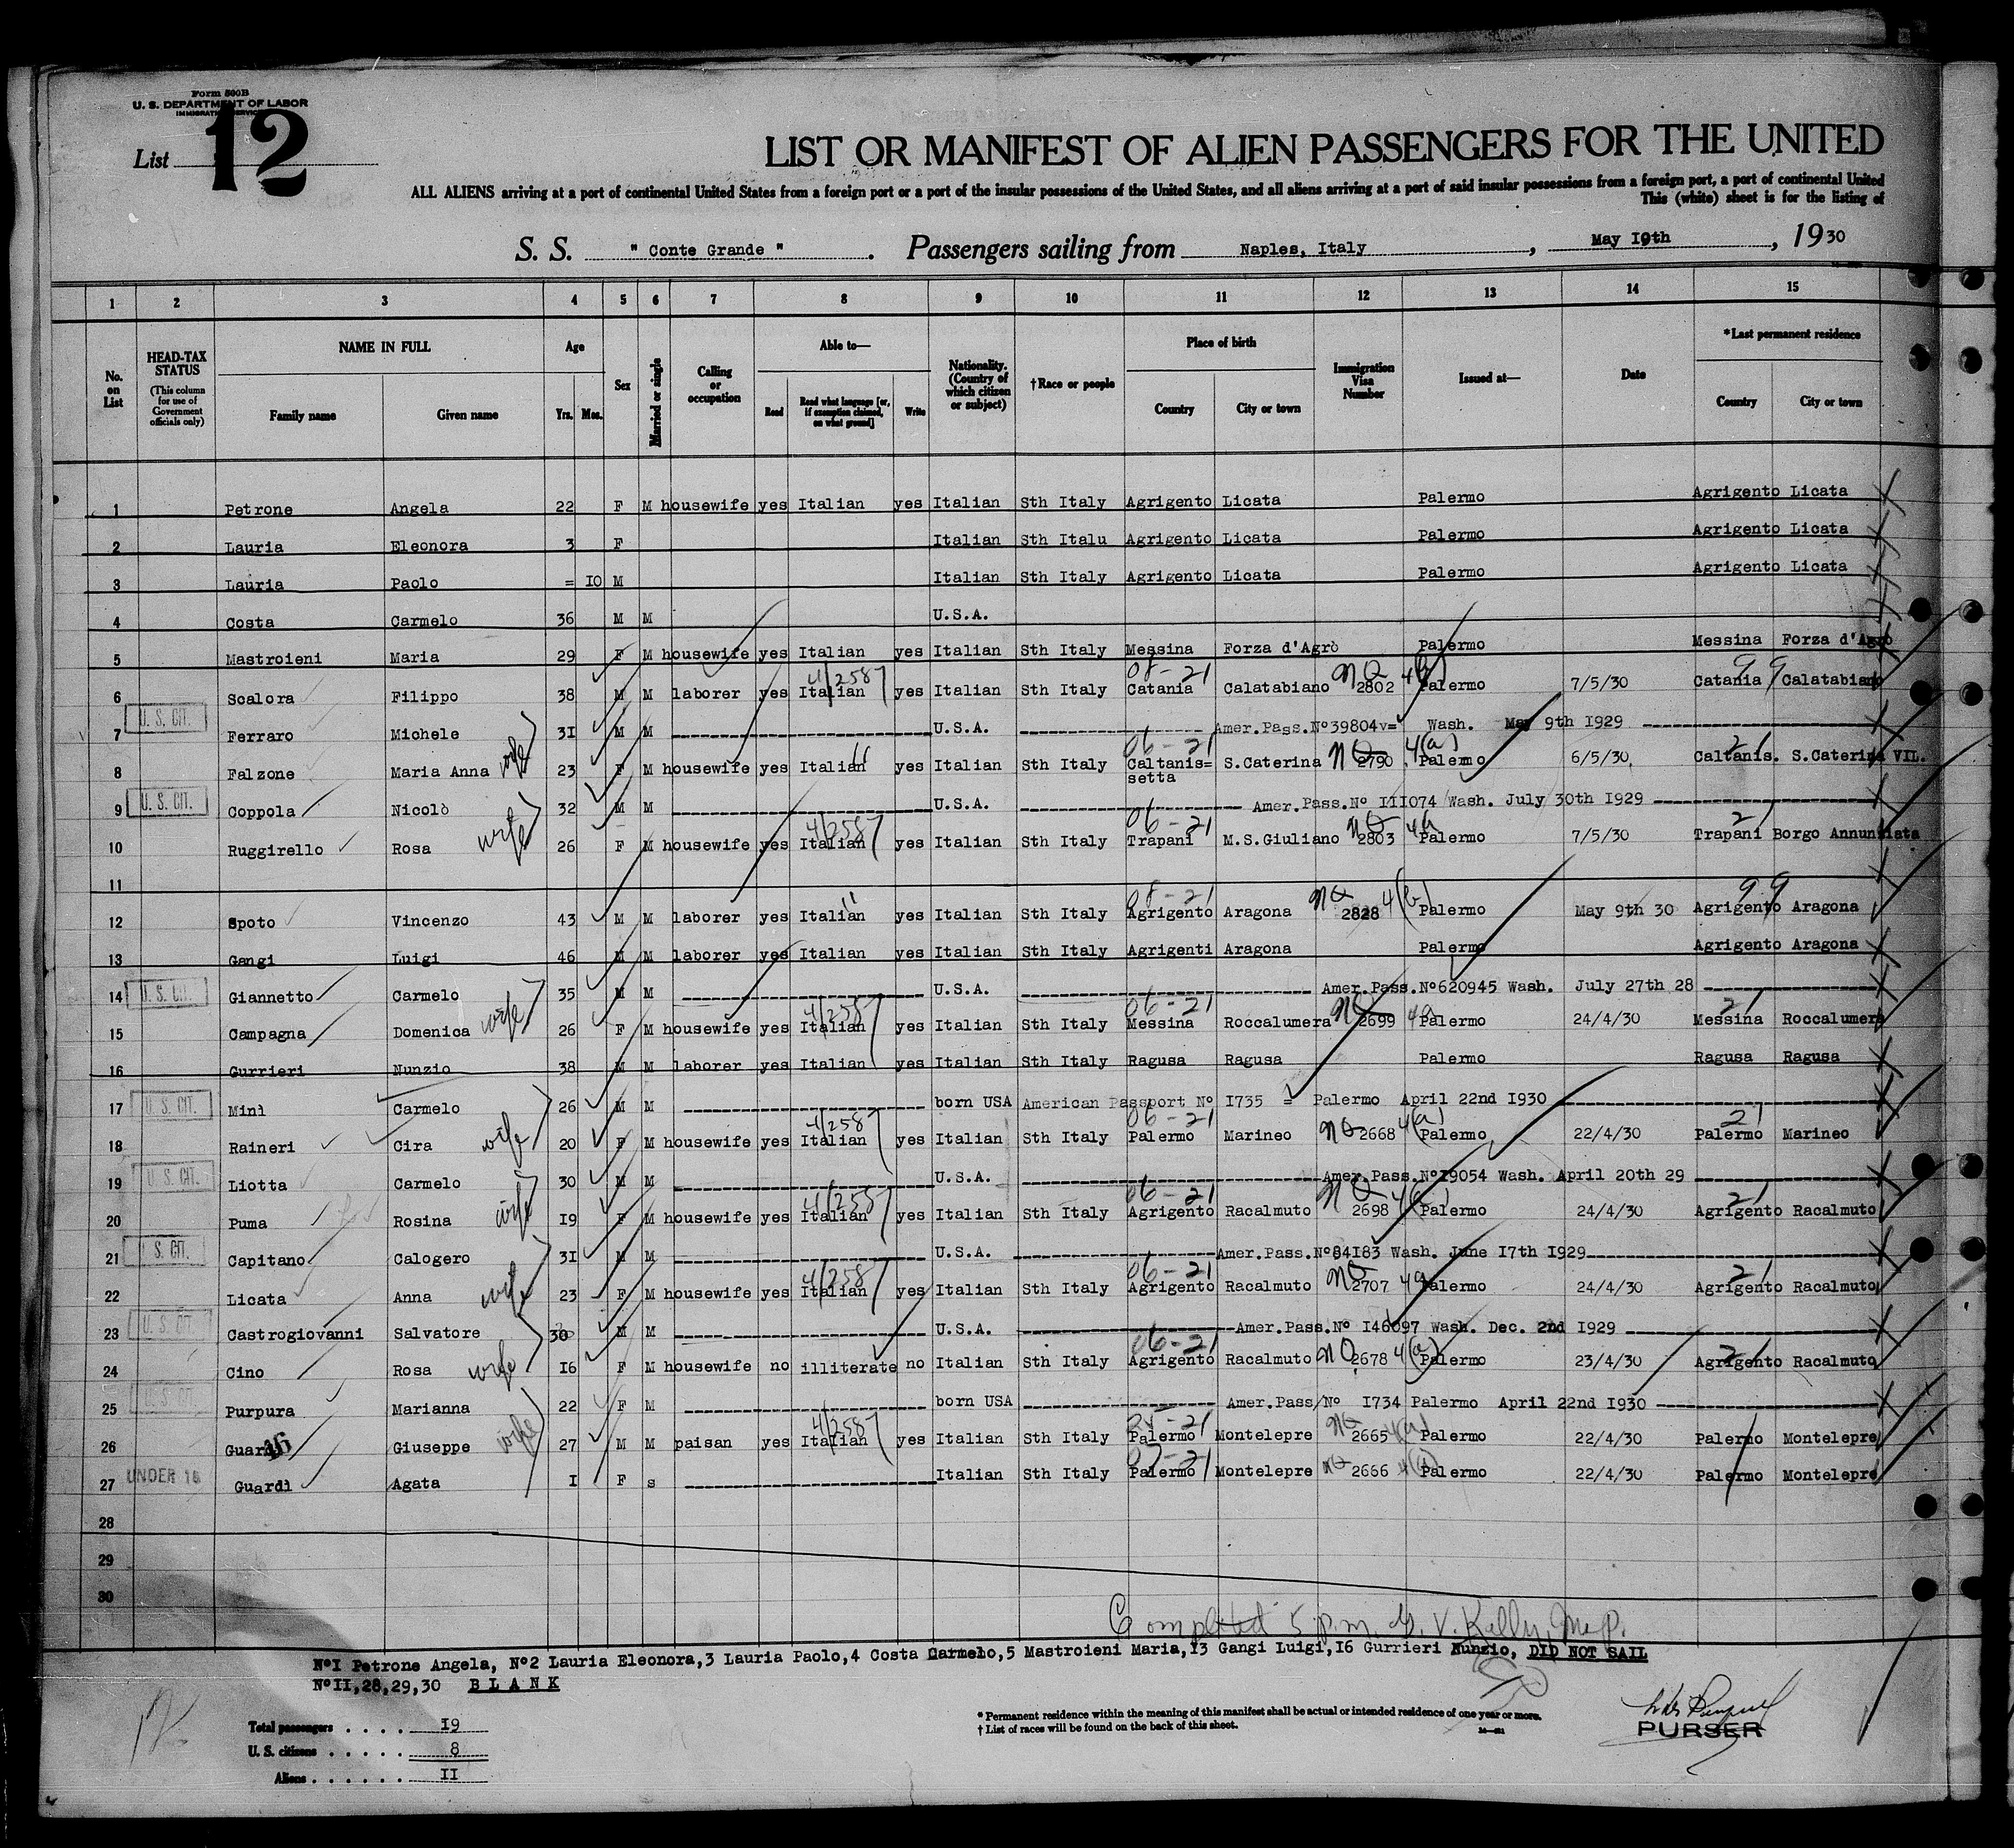 Form 500B
U. S. DEPARTMENT OF LABOR
IMMIGRATION SERVICE
List 12
LIST OR MANIFEST OF ALIEN PASSENGERS FOR THE UNITED
ALL ALIENS arriving at a port of continental United States from a foreign port or a port of the insular possessions of the United States, and all aliens arriving at a port of said insular possessions from a foreign port, a port of continental United
This (white) sheet is for the listing of
S. S. " Conte Grande " . Passengers sailing from Naples, Italy , May I9th , 1930
1 2 3 4 5 6 7 8 9 10 11 12 13 14 15
No. on List
HEAD-TAX STATUS (This column for use of Government officials only)
NAME IN FULL Family name Given name
Age Yrs. Mos.
Sex
Married or single
Calling or occupation
Able to— Read Read what language [or, if exemption claimed, on what ground] Write
Nationality. (Country of which citizen or subject)
†Race or people
Place of birth Country City or town
Immigration Visa Number
Issued at—
Date
*Last permanent residence Country City or town
1 Petrone Angela 22 F M housewife yes Italian yes Italian Sth Italy Agrigento Licata Palermo Agrigento Licata
2 Lauria Eleonora 3 F Italian Sth Italu Agrigento Licata Palermo Agrigento Licata
3 Lauria Paolo = IO M Italian Sth Italy Agrigento Licata Palermo Agrigento Licata
4 Costa Carmelo 36 M M U.S.A.
5 Mastroieni Maria 29 F M housewife yes Italian yes Italian Sth Italy Messina Forza d'Agrò Palermo Messina Forza d'Agrò
6 Scalora Filippo 38 M M laborer yes Italian 4/258 yes Italian Sth Italy 08-21 Catania Calatabiano NQ 2802 4(b) Palermo 7/5/30 99 Catania Calatabiano
7 U. S. CIT. Ferraro Michele 3I M M U.S.A. Amer.Pass.Nº39804v= Wash. May 9th I929
8 Falzone Maria Anna wife 23 F M housewife yes Italian " yes Italian Sth Italy 06-21 Caltanis= setta S.Caterina NQ 2790 4(a) Palermo 6/5/30. 21 Caltanis. S.Caterina VIL.
9 U. S. CIT. Coppola Nicolò 32 M M U.S.A. Amer.Pass.Nº III074 Wash. July 30th I929
10 Ruggirello Rosa wife 26 F M housewife yes Italian 4/258 yes Italian Sth Italy 06-21 Trapani M.S.Giuliano NQ 2803 4a Palermo 7/5/30 21 Trapani Borgo Annunziata
11
12 Spoto Vincenzo 43 M M laborer yes Italian " yes Italian Sth Italy 08-21 Agrigento Aragona NQ 2828 4(b) Palermo May 9th 30 99 Agrigento Aragona
13 Gangi Luigi 46 M M laborer yes Italian yes Italian Sth Italy Agrigenti Aragona Palermo Agrigento Aragona
14 U. S. CIT. Giannetto Carmelo 35 M M U.S.A. Amer.Pass.Nº620945 Wash. July 27th 28
15 Campagna Domenica wife 26 F M housewife yes Italian 4/258 yes Italian Sth Italy 06-21 Messina Roccalumera NQ 2699 4a Palermo 24/4/30 21 Messina Roccalumera
16 Gurrieri Nunzio 38 M M laborer yes Italian yes Italian Sth Italy Ragusa Ragusa Palermo Ragusa Ragusa
17 U. S. CIT. Minì Carmelo 26 M M born USA American Passport Nº I735 = Palermo April 22nd I930
18 Raineri Cira wife 20 F M housewife yes Italian 4/258 yes Italian Sth Italy 06-21 Palermo Marineo NQ 2668 4(a) Palermo 22/4/30 21 Palermo Marineo
19 U. S. CIT. Liotta Carmelo 30 M M U.S.A. Amer.Pass.NºI9054 Wash. April 20th 29
20 Puma Rosina wife I9 F M housewife yes Italian 4/258 yes Italian Sth Italy 06-21 Agrigento Racalmuto NQ 2698 Palermo 24/4/30 21 Agrigento Racalmuto
21 S. CIT. Capitano Calogero 3I M M U.S.A. Amer.Pass.Nº84I83 Wash. June I7th I929
22 Licata Anna wife 23 F M housewife yes Italian 4/258 yes Italian Sth Italy 06-21 Agrigento Racalmuto NQ 2707 4a Palermo 24/4/30 21 Agrigento Racalmuto
23 U. S. CIT. Castrogiovanni Salvatore 30 M M U.S.A. Amer.Pass.Nº I46097 Wash. Dec. 2nd I929
24 Cino Rosa wife I6 F M housewife no illiterate no Italian Sth Italy 06-21 Agrigento Racalmuto NQ 2678 4(a) Palermo 23/4/30 21 Agrigento Racalmuto
25 U. S. CIT. Purpura Marianna 22 F M born USA Amer.Pass/Nº I734 Palermo April 22nd I930
26 Guardì 16 Giuseppe 27 M M paisan yes Italian 4/258 yes Italian Sth Italy Palermo Montelepre NQ 2665 4(a) Palermo 22/4/30 Palermo Montelepre
27 UNDER 16 Guardì Agata I F s Italian Sth Italy Palermo Montelepre NQ 2666 Palermo 22/4/30 Palermo Montelepre
28
29
30
Completed 5 p.m. V. Kelly
NºI Petrone Angela, Nº2 Lauria Eleonora,3 Lauria Paolo,4 Costa Carmelo,5 Mastroieni Maria,I3 Gangi Luigi,I6 Gurrieri Nunzio, DID NOT SAIL
NºII,28,29,30 BLANK
12
Total passengers . . . . I9
U. S. citizens . . . . . 8
Aliens . . . . . . II
* Permanent residence within the meaning of this manifest shall be actual or intended residence of one year or more.
† List of races will be found on the back of this sheet.
PURSER